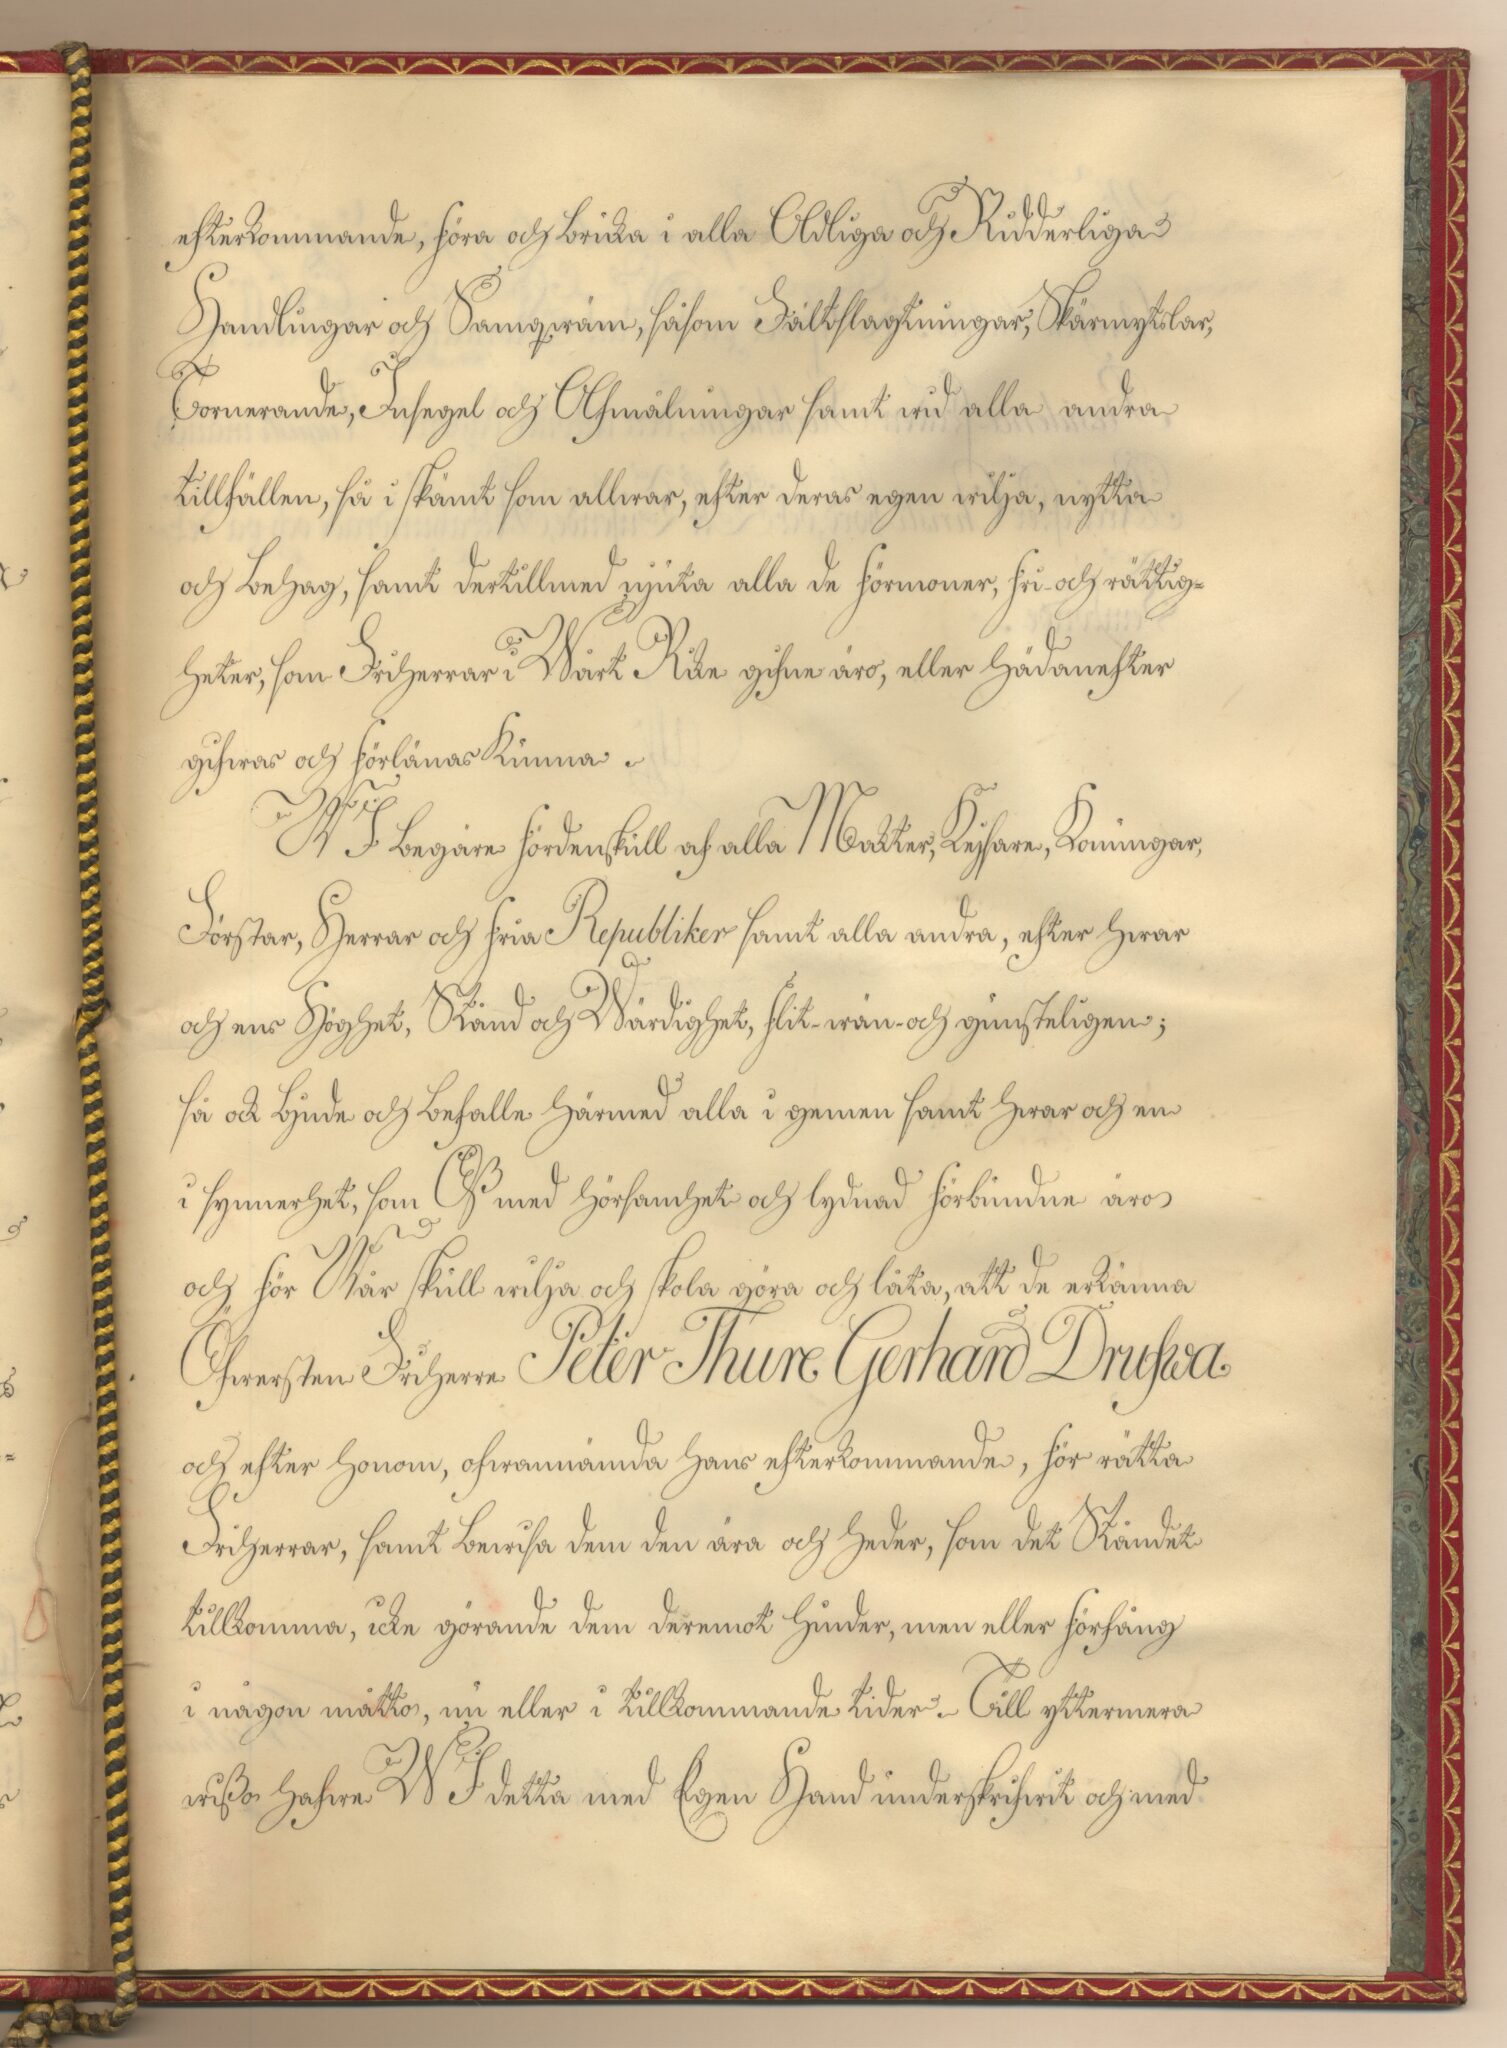 efterkommande, föra och bruka i alla Adliga och Ridderliga
Handlingar och Samqwäm, såsom Fältslagtningar, Skärmytslar,
Tornerande, Insegel och Afmålningar samt wid alla andra
tillfällen, så i skämt som allwar, efter deras egen wilja, nytta
och behag, samt dertillmed njuta alla de förmoner, fri- och rättig-
heter, som Friherrar i Wårt Rike gifne äro, eller hädanefter
gifwas och förlänas kunna.
WJ begäre fördenskull af alla Makter, Kejsare, Konungar,
Förstar, Herrar och fria Republiker samt alla andra, efter hwar
och ens Höghet, Stånd och Wärdighet, flit- wän- och gunsteligen;
så ock bjude och befalle härmed alla i gemen samt hwar och en
i synnerhet, som Oß med hörsamhet och lydnad förbundne äro
och för Wår skull wilja och skola göra och låta, att de erkänna
Öfwersten Friherre Peter Thure Gerhard Drufwa
och efter honom, ofwannämda hans efterkommande, för rätta
Friherrar, samt bewisa dem den ära och heder, som det Ståndet
tillkomma, icke görande dem deremot hinder, men eller förfång
i någon måtto, nu eller i tillkommande tider. Till yttermera
wißo hafwe WJ detta med Egen Hand underskrifwit och med